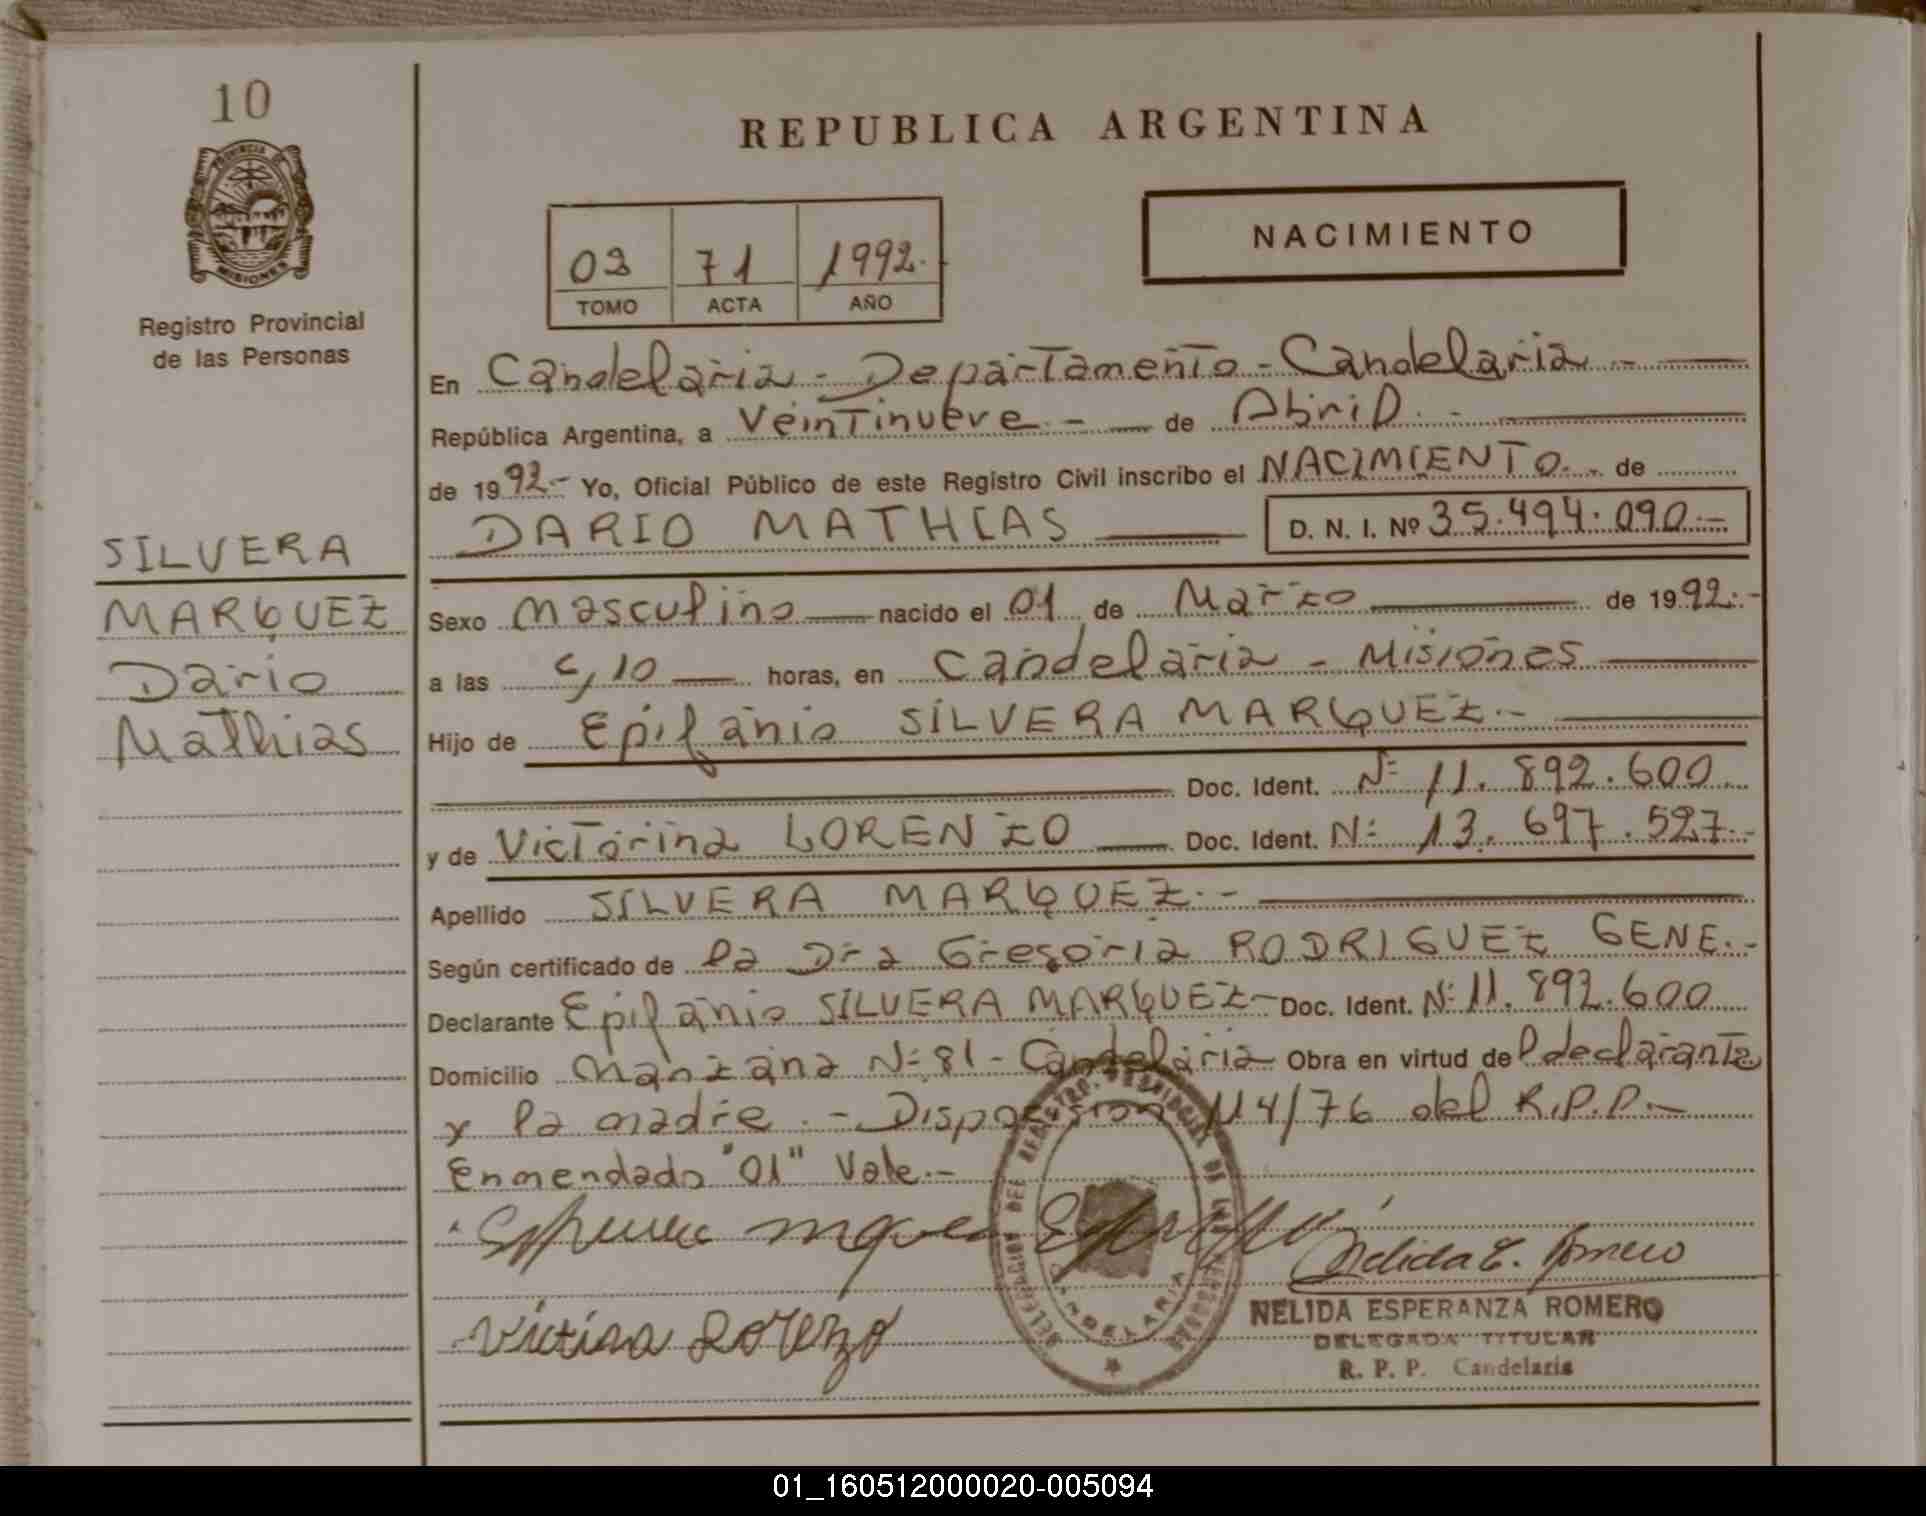 10
PROVINCIA DE
MISIONES
Registro Provincial
de las Personas
SILVERA
MARQUEZ
Dario
Mathias
REPUBLICA ARGENTINA
03 71 1992.
TOMO ACTA AÑO
NACIMIENTO
En Candelaria - Departamento - Candelaria -
República Argentina, a Veintinueve - de Abril. -
de 1992.- Yo, Oficial Público de este Registro Civil inscribo el NACIMIENTO. - de
DARIO MATHIAS D. N. I. Nº 35.494.090.-
Sexo masculino nacido el 01 de Marzo de 1992.-
a las 5,10 horas, en Candelaria - Misiones
Hijo de Epifanio SILVERA MARQUEZ.-
Doc. Ident. Nº 11.892.600
y de Victorina LORENZO Doc. Ident. Nº 13.697.527.-
Apellido SILVERA MARQUEZ.-
Según certificado de la Dra Gregoria RODRIGUEZ GENE.-
Declarante Epifanio SILVERA MARQUEZ- Doc. Ident. Nº 11.892.600
Domicilio Manzana Nº 81 - Candelaria Obra en virtud del declarante
y la madre. - Disposicion 114/76 del R.P.P.-
Enmendado "01" Vale.-
DELEGACION DEL REGISTRO PROVINCIAL DE LAS PERSONAS
CANDELARIA
Nelida E. Romero
Victina Lorenzo
NELIDA ESPERANZA ROMERO
DELEGADA TITULAR
R. P. P. Candelaria
01_160512000020-005094